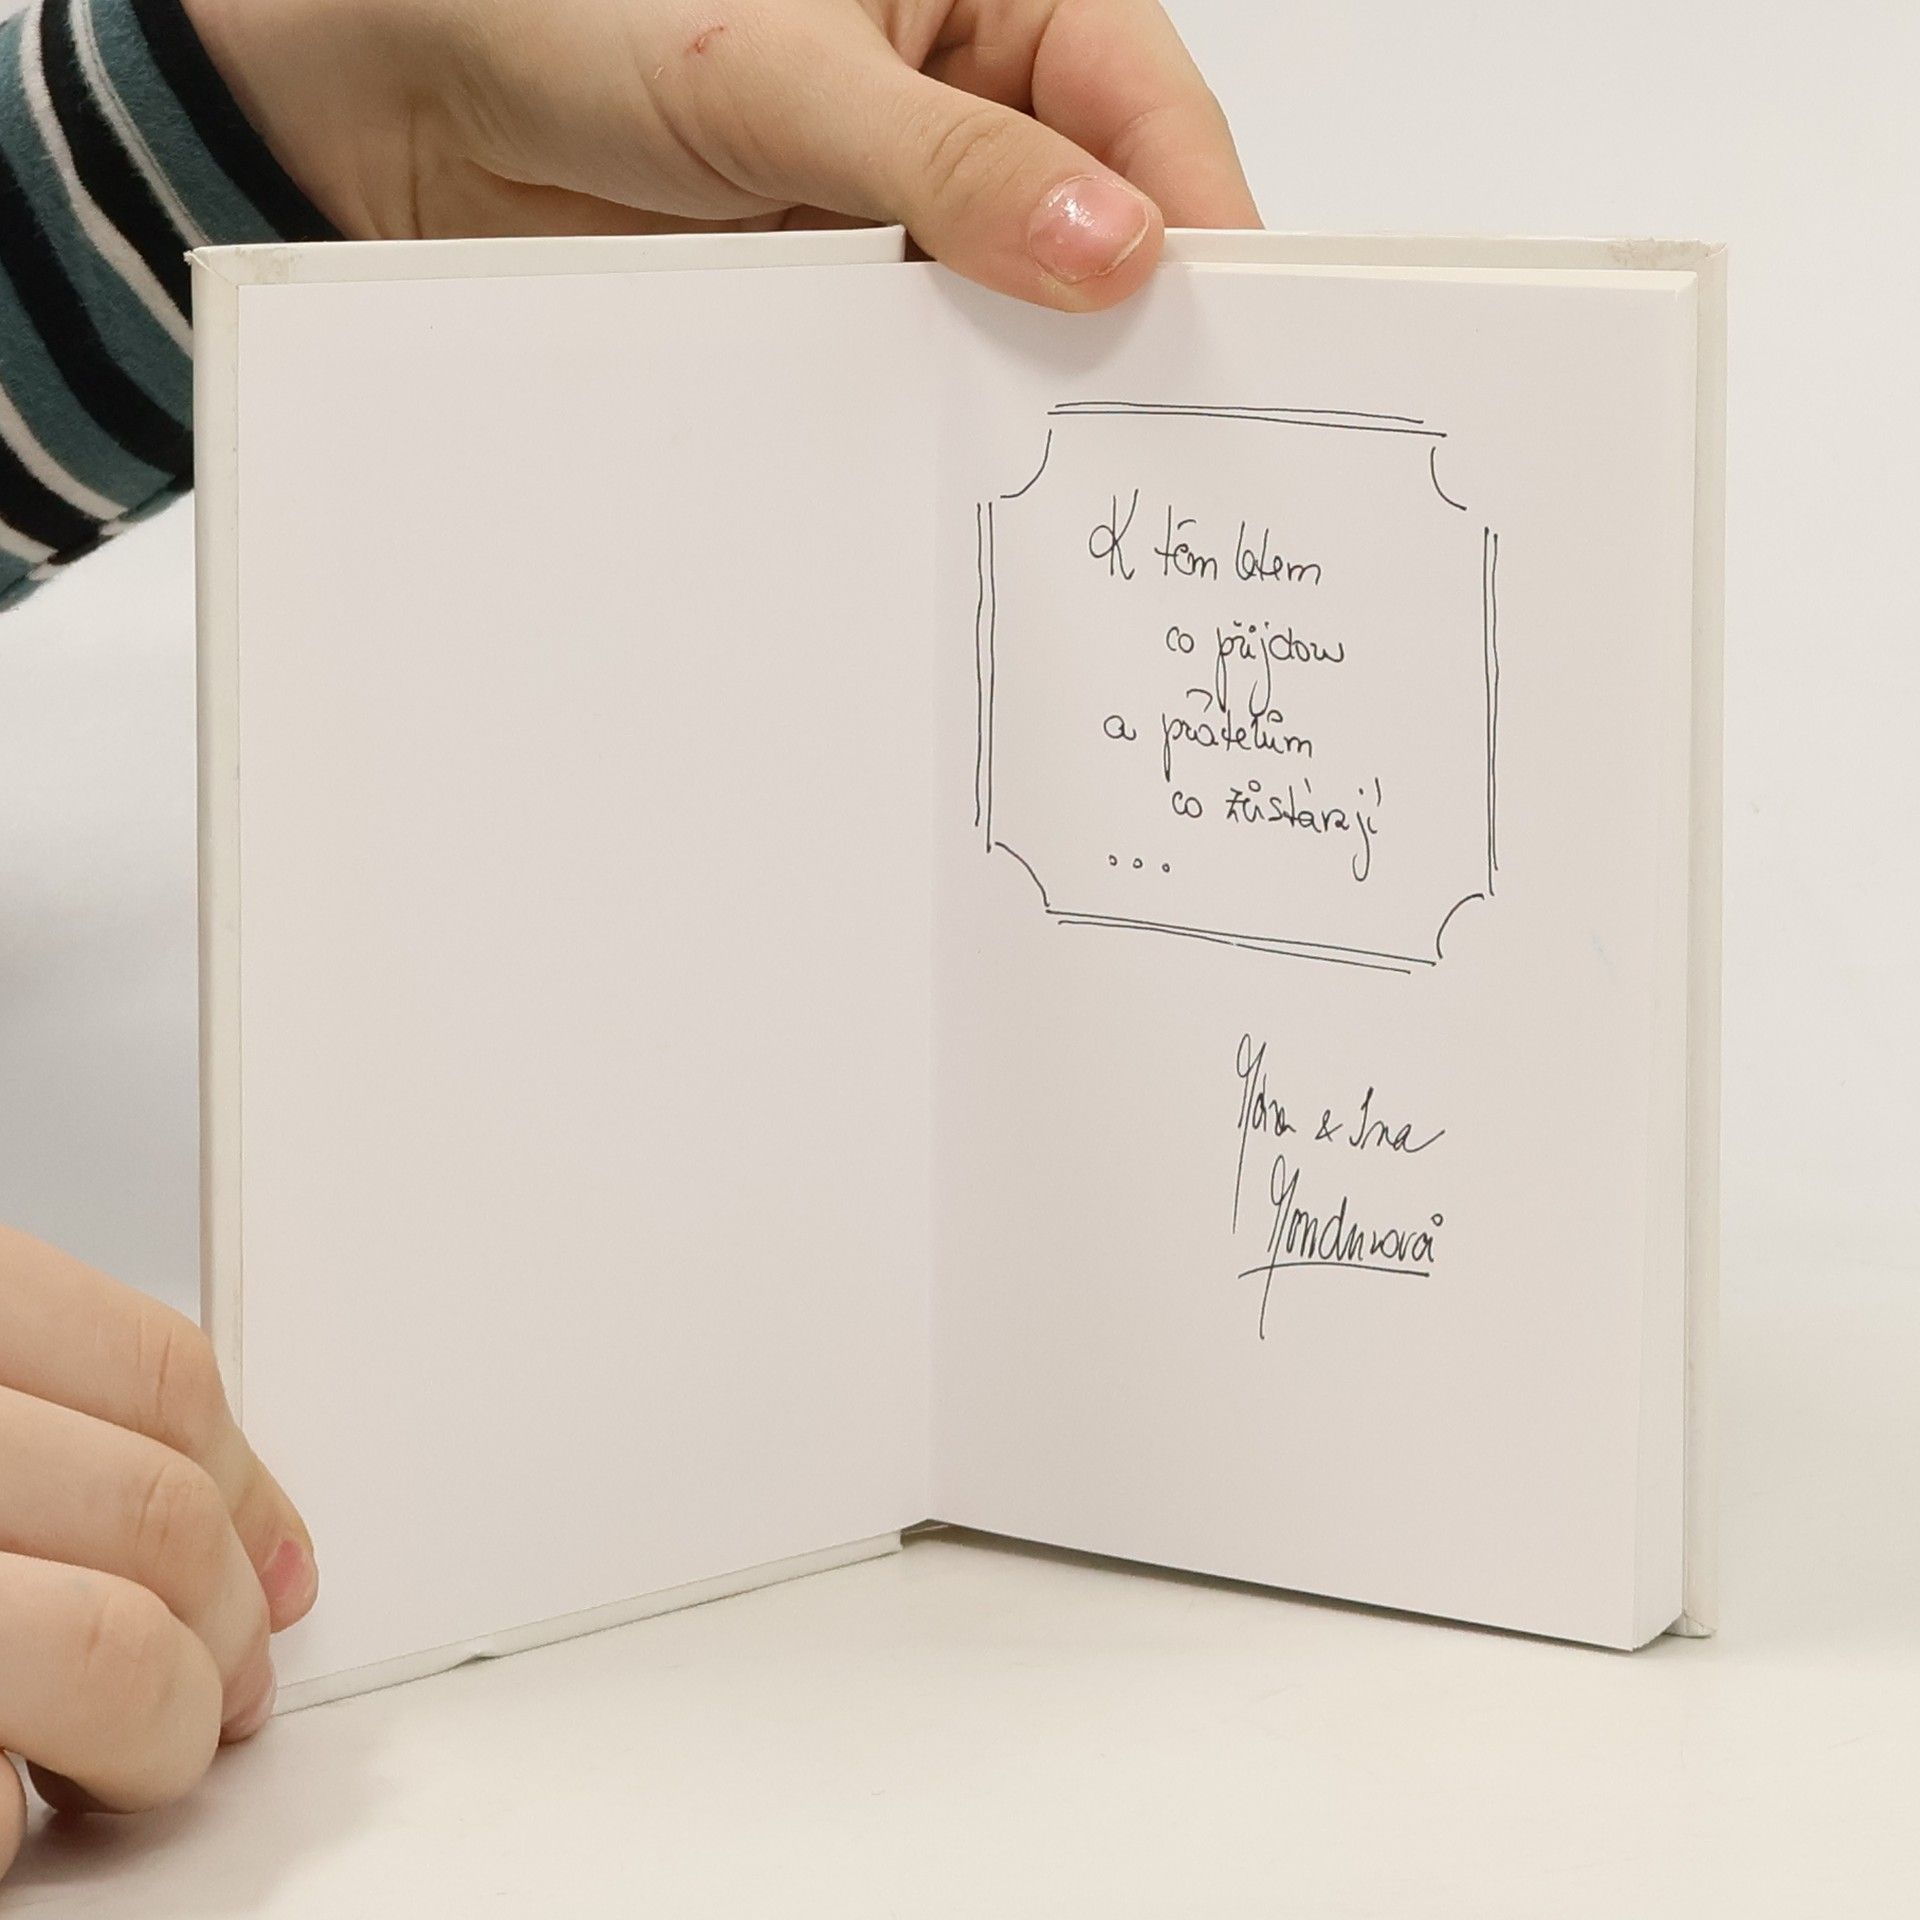 K těm letem
co přijdou
a přátelům
co zůstávají
...
& Ina